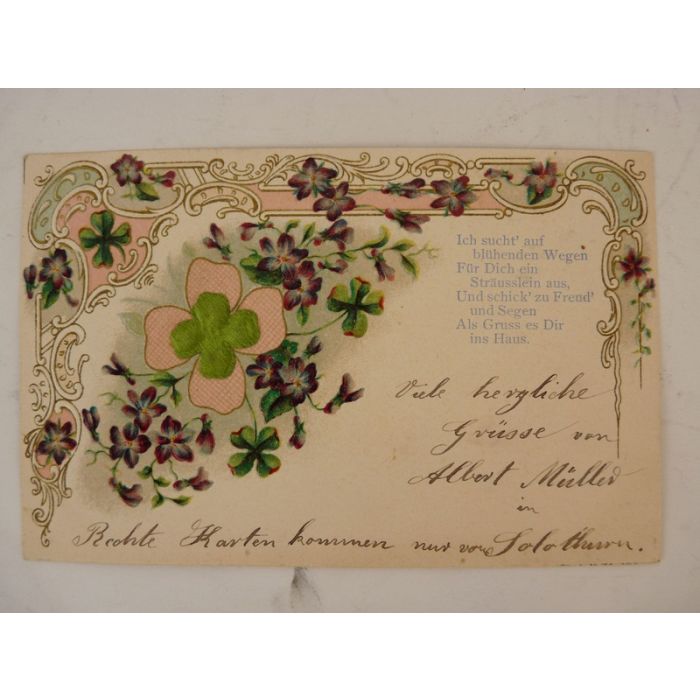 Ich sucht' auf
blühenden Wegen
Für Dich ein
Sträusslein aus,
Und schick' zu Freud'
und Segen
Als Gruss es Dir
ins Haus.
Viele herzliche
Grüsse von
Albert Müller
in
Rechte Karten kommen nur von Solothurn.